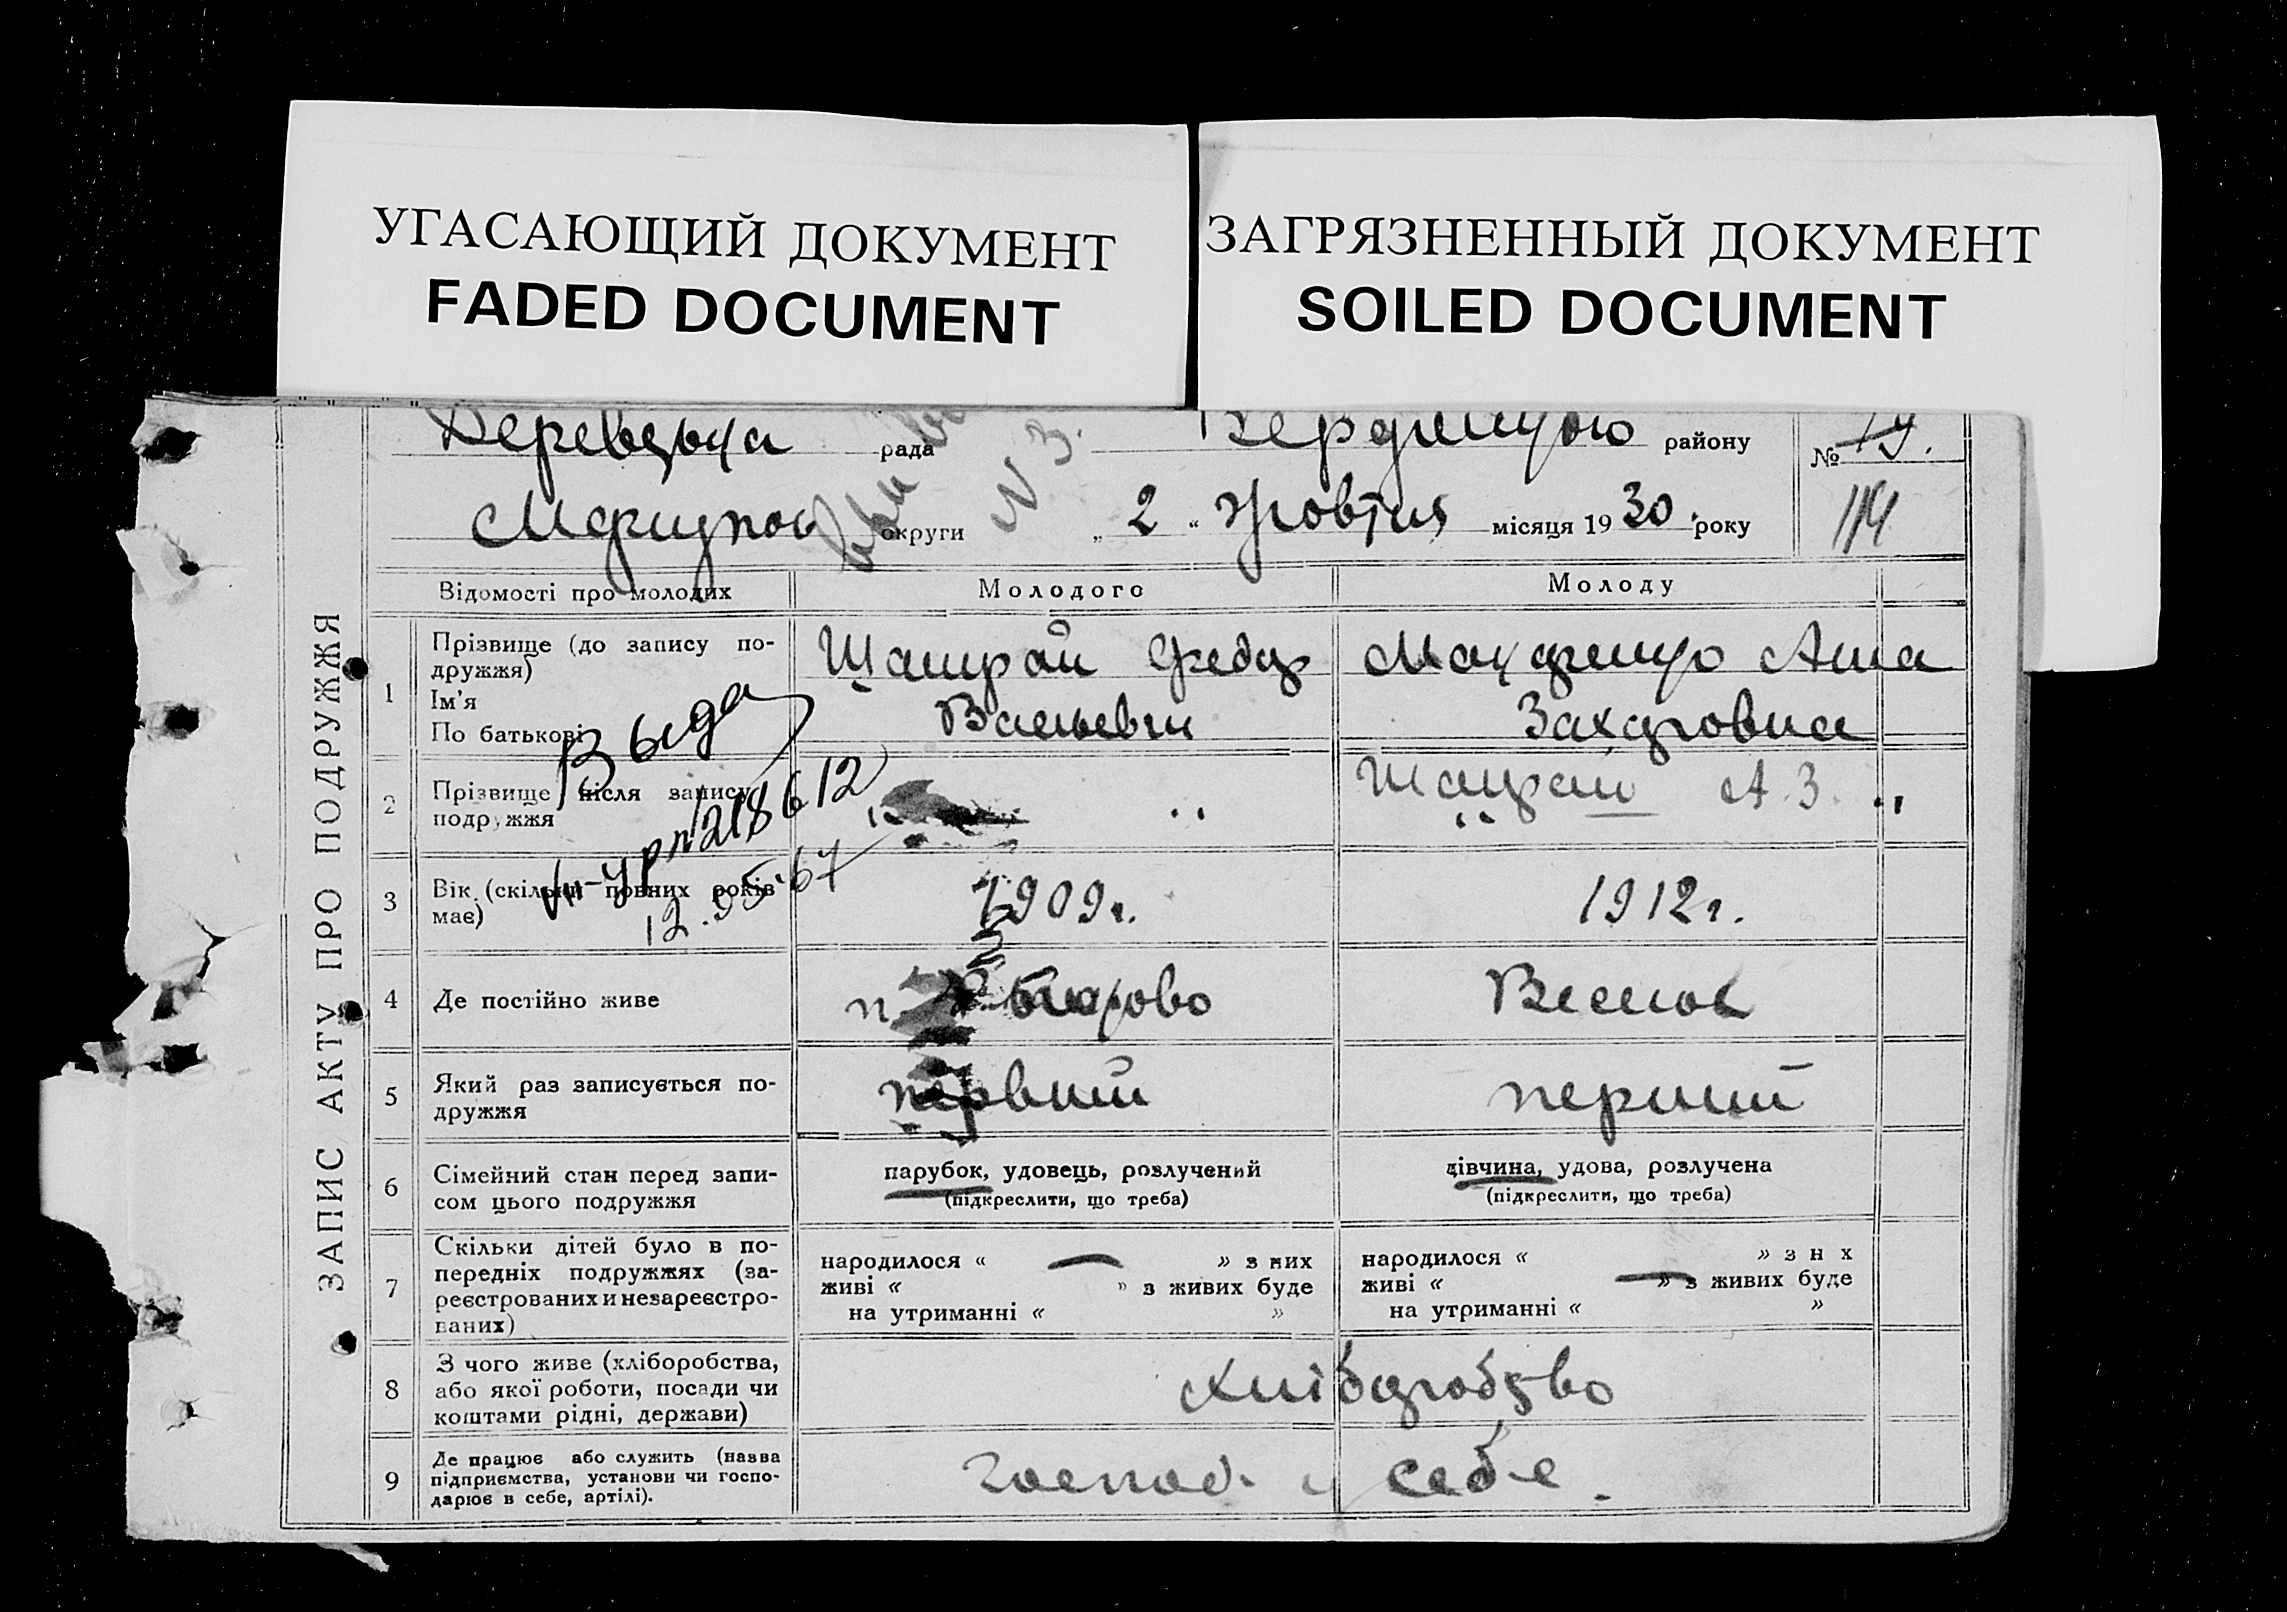 УГАСАЮЩИЙ ДОКУМЕНТ
FADED DOCUMENT
ЗАГРЯЗНЕННЫЙ ДОКУМЕНТ
SOILED DOCUMENT
рада району №
округи „ 2 “ жовтня місяця 1930 року
114
N 3.
ЗАПИС АКТУ ПРО ПОДРУЖЖЯ
Відомості про молодих Молодого Молоду
1 Прізвище (до запису по-
дружжя)
Ім'я
По батькові
Федор
Васильевич
Захаровна
Выда
218612
12.05.67
2 Прізвище після запису
подружжя
А.З.
3 Вік (скільки повних років
має)
1909г. 1912г.
4 Де постійно живе
5 Який раз записується по-
дружжя
первий перший
6 Сімейний стан перед запи-
сом цього подружжя
парубок, удовець, розлучений
(підкреслити, що треба)
дівчина, удова, розлучена
(підкреслити, що треба)
7 Скільки дітей було в по-
передніх подружжях (за-
реєстрованих и незареєстро-
ваних)
народилося « — » з них
живі « » з живих буде
на утриманні « »
народилося « » з н х
живі « — » з живих буде
на утриманні « »
8 З чого живе (хліборобства,
або якої роботи, посади чи
коштами рідні, держави)
хліборобство
9 Де працює або служить (назва
підприємства, установи чи госпо-
дарює в себе, артілі).
господ. у себе.